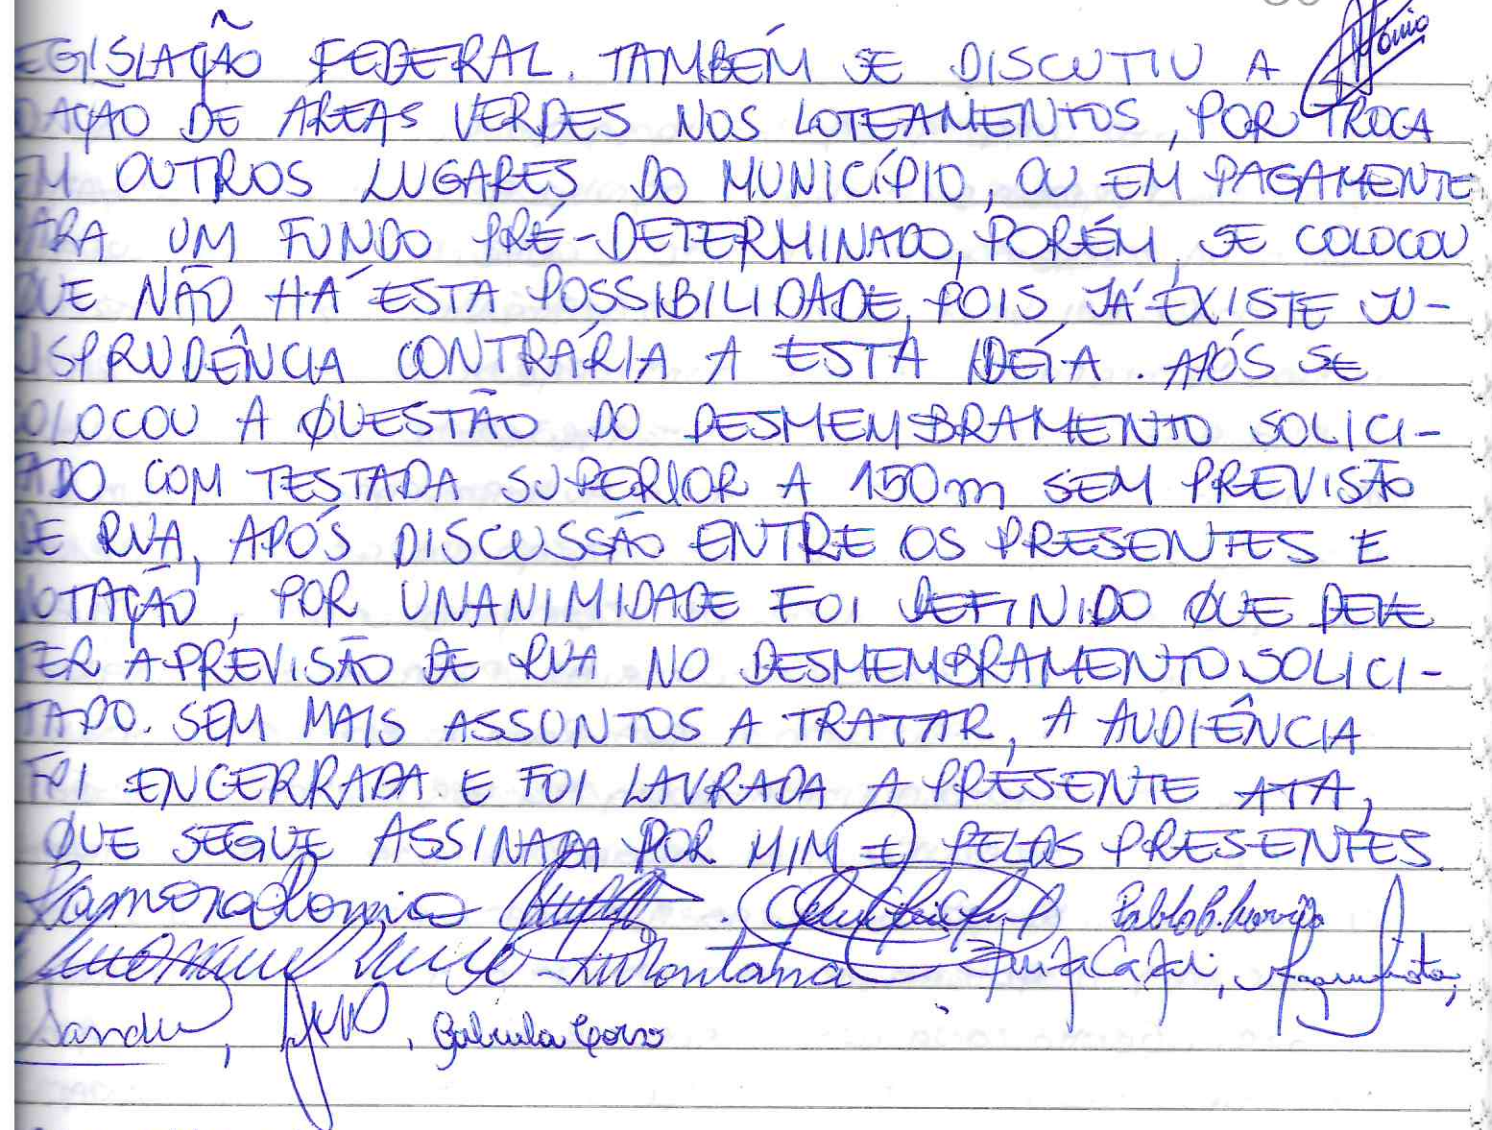 EGISLAÇÃO FEDERAL. TAMBÉM SE DISCUTIU A
DAÇÃO DE ÁREAS VERDES NOS LOTEAMENTOS, POR TROCA
EM OUTROS LUGARES DO MUNICÍPIO, OU EM PAGAMENTE
ARA UM FUNDO PRÉ-DETERMINADO, PORÉM, SE COLOCOU
QUE NÃO HÁ ESTA POSSIBILIDADE, POIS JÁ EXISTE JU-
ISPRUDÊNCIA CONTRÁRIA A ESTA IDÉIA. APÓS SE
OLOCOU A QUESTÃO DO DESMEMBRAMENTO SOLICI-
ADO COM TESTADA SUPERIOR A 150m SEM PREVISÃO
DE RUA, APÓS DISCUSSÃO ENTRE OS PRESENTES E
VOTAÇÃO, POR UNANIMIDADE FOI DEFINIDO QUE DEVE
TER A PREVISÃO DE RUA NO DESMEMBRAMENTO SOLICI-
TADO. SEM MAIS ASSUNTOS A TRATAR, A AUDIÊNCIA
FOI ENCERRADA E FOI LAVRADA A PRESENTE ATA,
QUE SEGUE ASSINADA POR MIM E PELOS PRESENTES.
Sandr
, Gabriela Corso